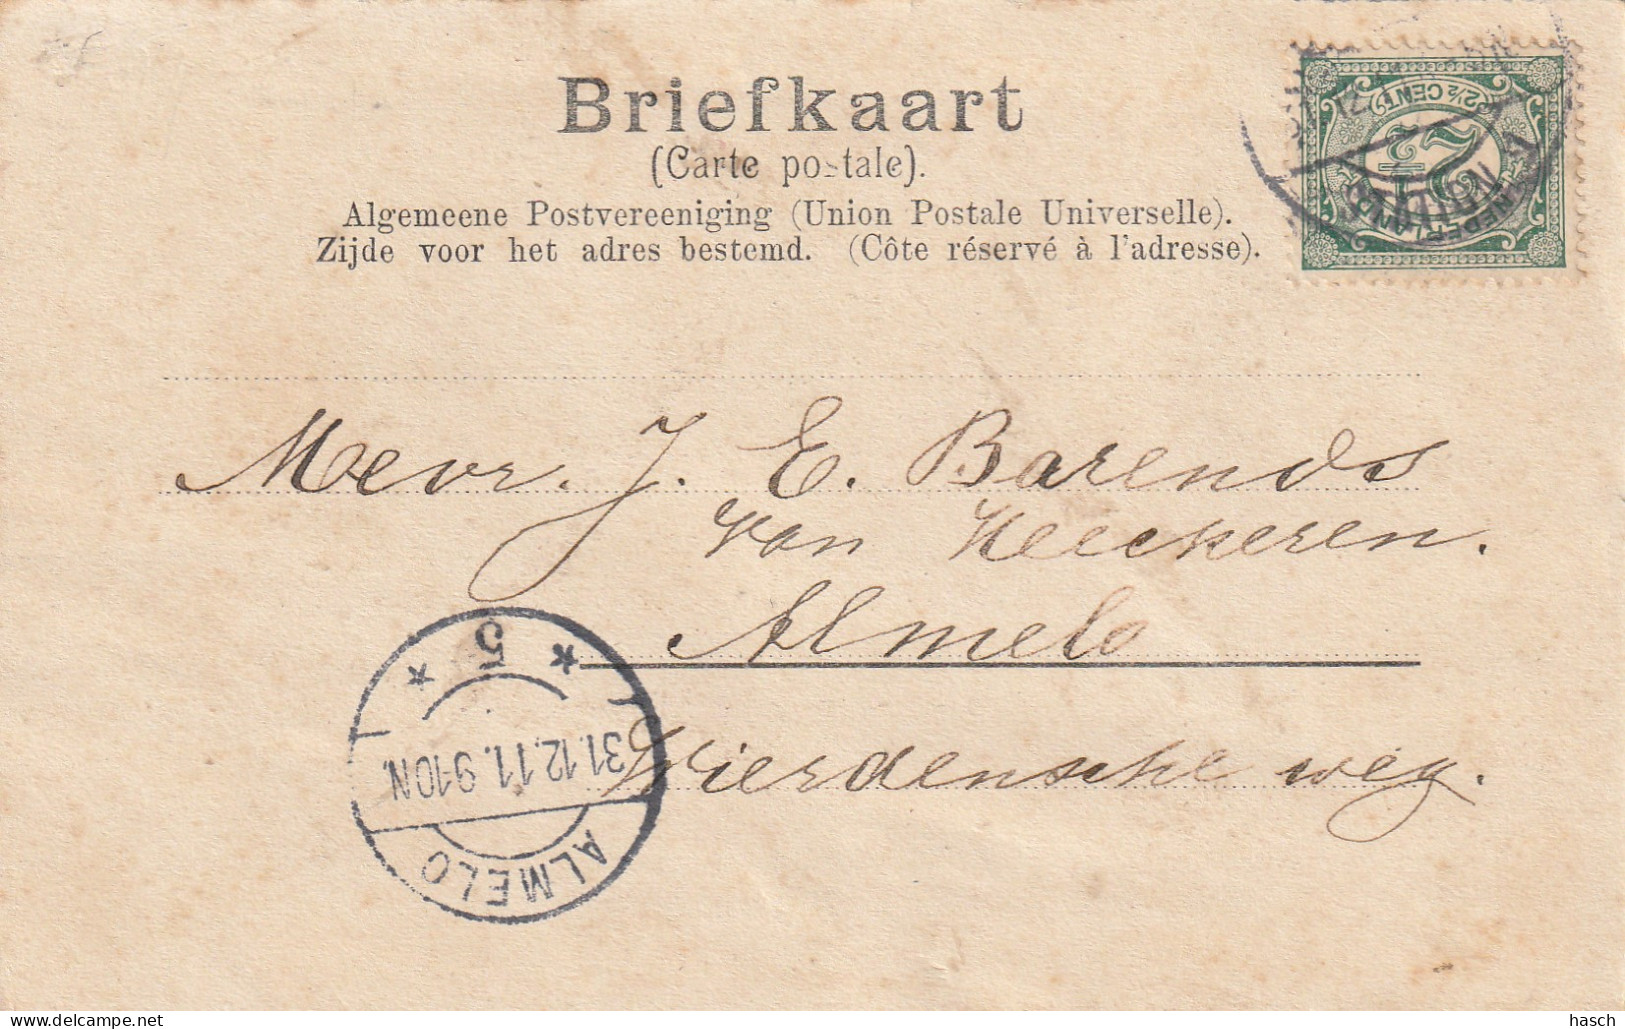 Briefkaart
(Carte postale).
Algemeene Postvereeniging (Union Postale Universelle).
Zijde voor het adres bestemd. (Côte réservé à l'adresse).
2½ CENT
2½
NEDERLAND
Mevr. J. E. Barends
van Heeckeren.
Almelo
Wierdensche weg.
5
31.12.11. 9-10N.
ALMELO
hasch